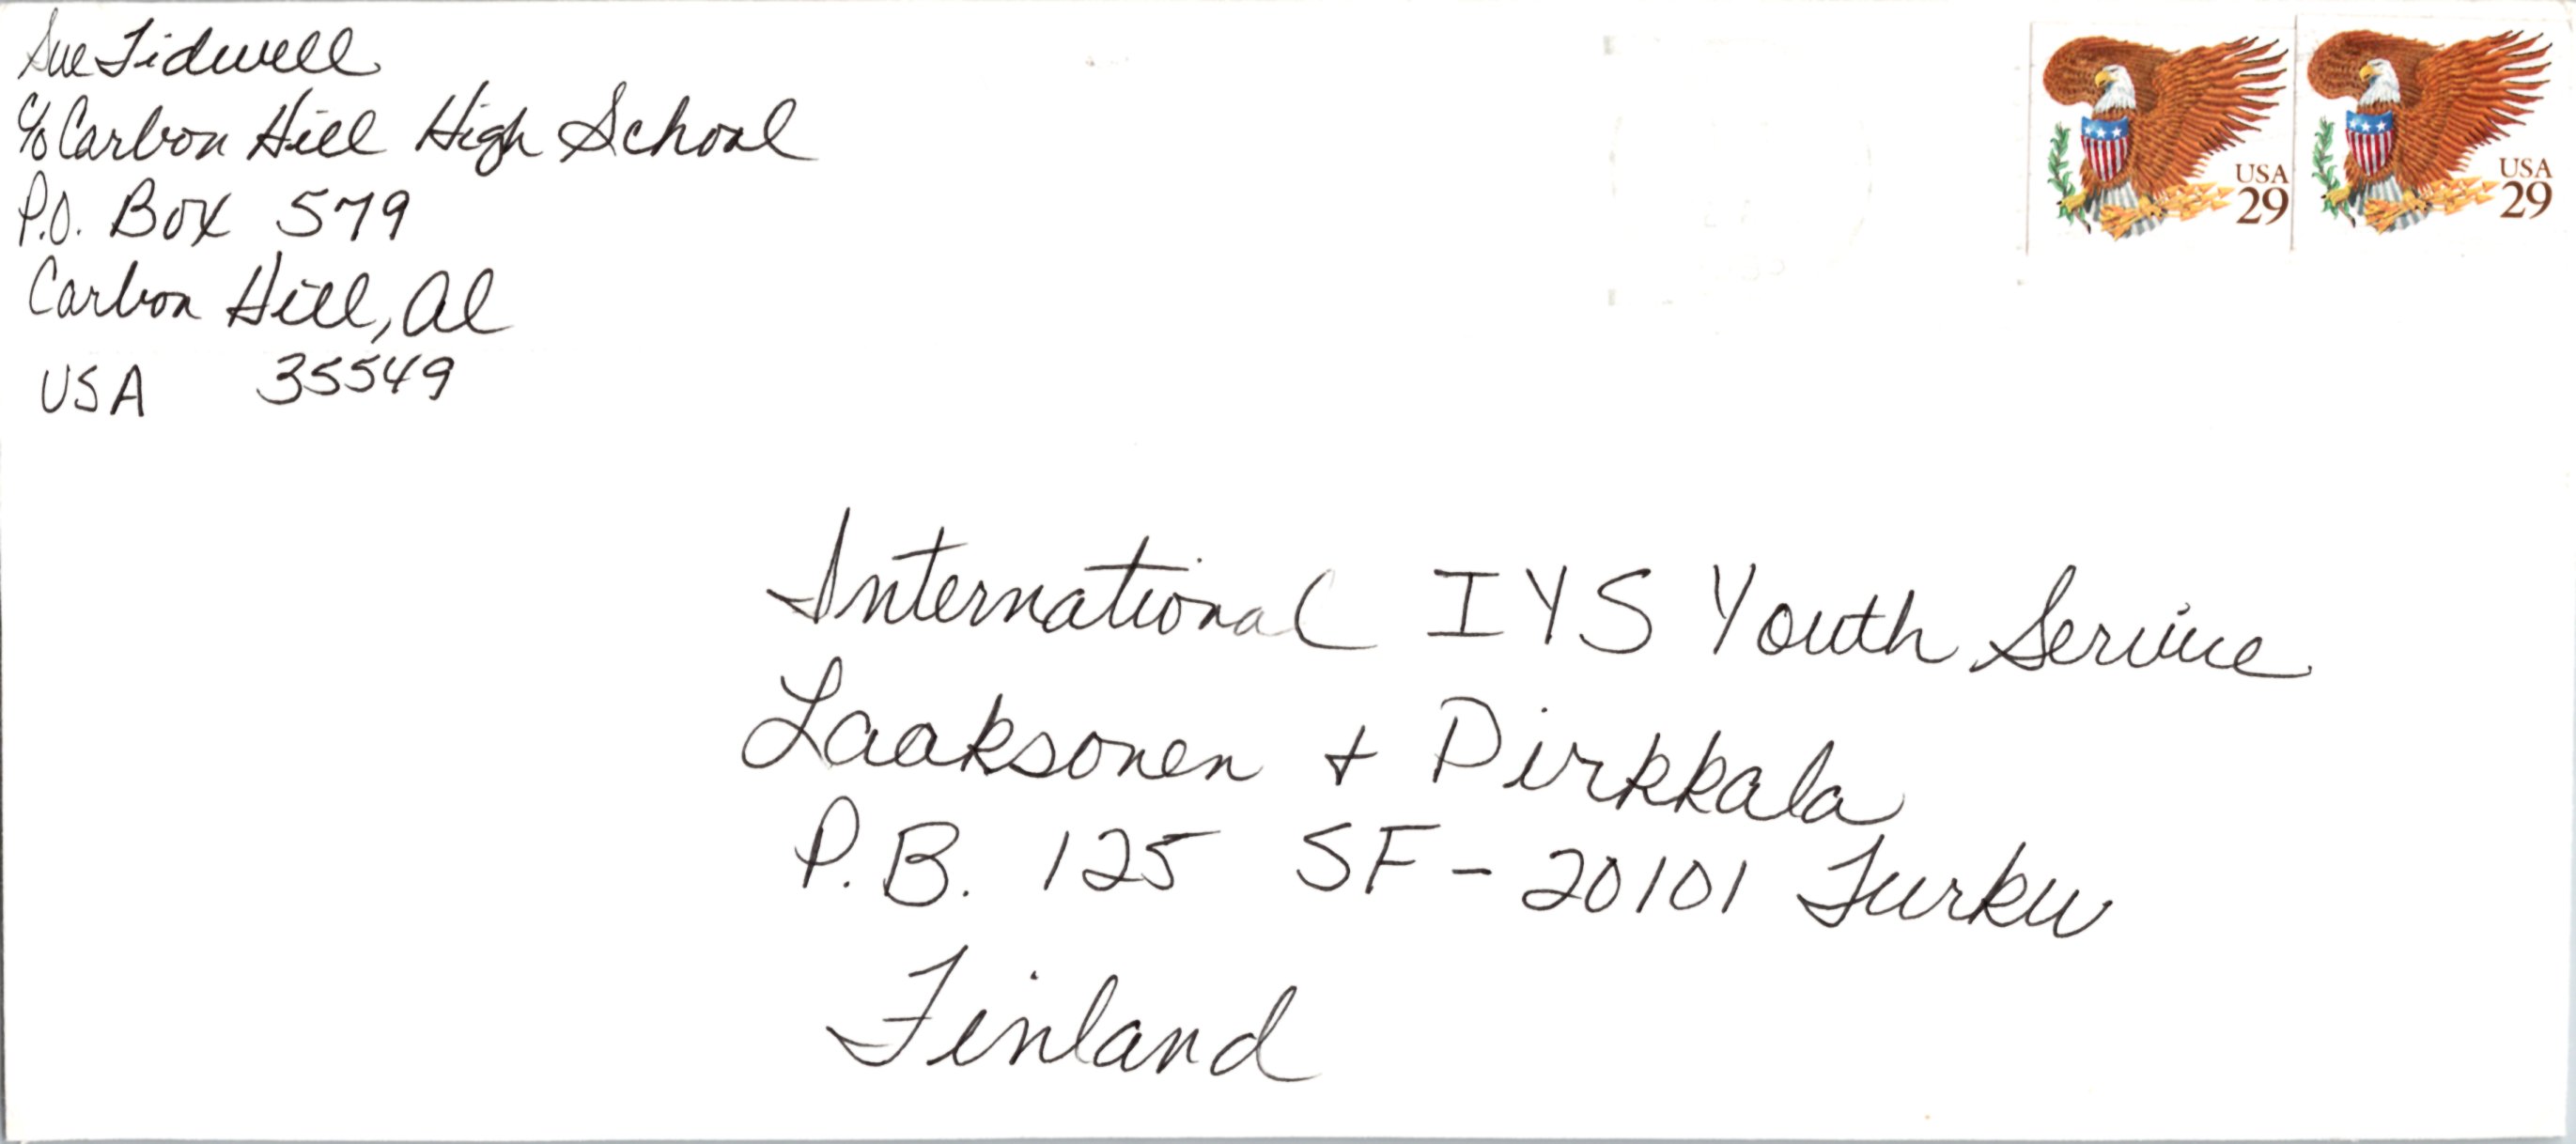 Sue Tidwell
c/o Carbon Hill High School
P.O. Box 579
Carbon Hill, Al
USA 35549
USA
29
USA
29
International IYS Youth Service
Laaksonen + Pirkkala
P.B. 125 SF - 20101 Turku
Finland